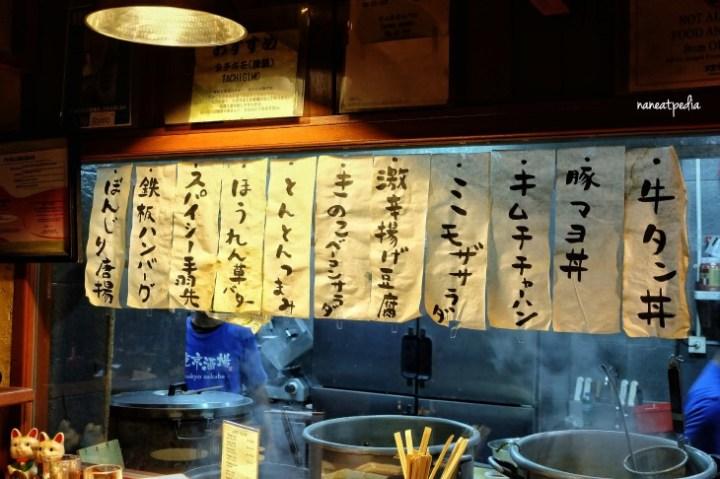 naneatpedia
おすすめ
TACHIGIMO
・牛タン丼
・豚マヨ丼
・キムチチャーハン
・ミニモザサラダ
・激辛揚げ豆腐
・きのこベーコンサラダ
・とんとんつまみ
・ほうれん草バター
・スパイシー手羽先
・鉄板ハンバーグ
・ぼんじり唐揚
東京酒場
tokyo sakaba